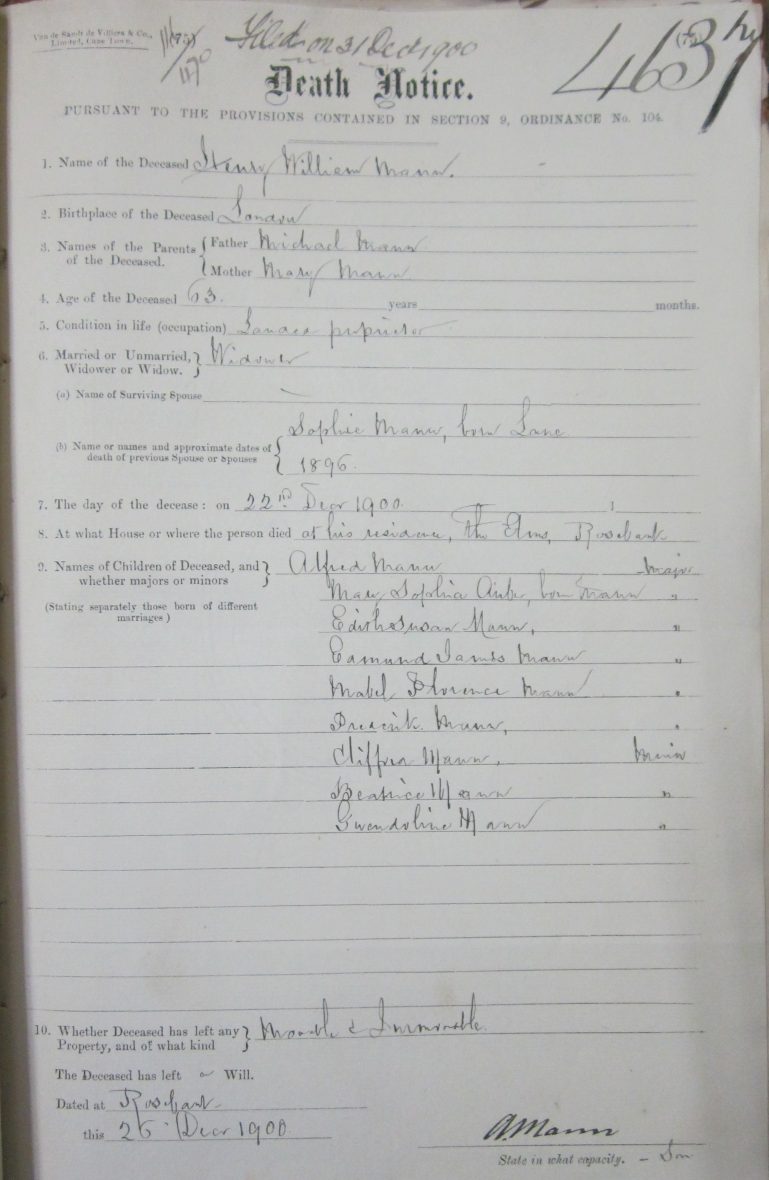 Van de Sandt de Villiers & Co.,
Limited, Cape Town.
Filed on 31 Dec 1900
463
Death Notice.
PURSUANT TO THE PROVISIONS CONTAINED IN SECTION 9, ORDINANCE No. 104.
1. Name of the Deceased Henry William Mann.
2. Birthplace of the Deceased London
3. Names of the Parents of the Deceased. { Father Michael Mann
Mother Mary Mann
4. Age of the Deceased 63. years months.
5. Condition in life (occupation) Landed proprietor
6. Married or Unmarried, Widower or Widow. } Widower
(a) Name of Surviving Spouse —
(b) Name or names and approximate dates of death of previous Spouse or Spouses { Sophie Mann, born Lane
1896.
7. The day of the decease: on 22nd Decr 1900.
8. At what House or where the person died at his residence, The Elms, Rosebank
9. Names of Children of Deceased, and whether majors or minors } Alfred Mann major
(Stating separately those born of different marriages)
Mary Sophia born Mann "
Edith Susan Mann, "
Edmund James Mann "
Mabel Florence Mann "
Frederik Mann, "
Cliffred Mann, Minor
Beatrice Mann "
Gwendoline Mann "
10. Whether Deceased has left any Property, and of what kind } Movable & Immovable.
The Deceased has left a Will.
Dated at Rosebank
this 26 Decr 1900.
A. Mann
State in what capacity. – Son